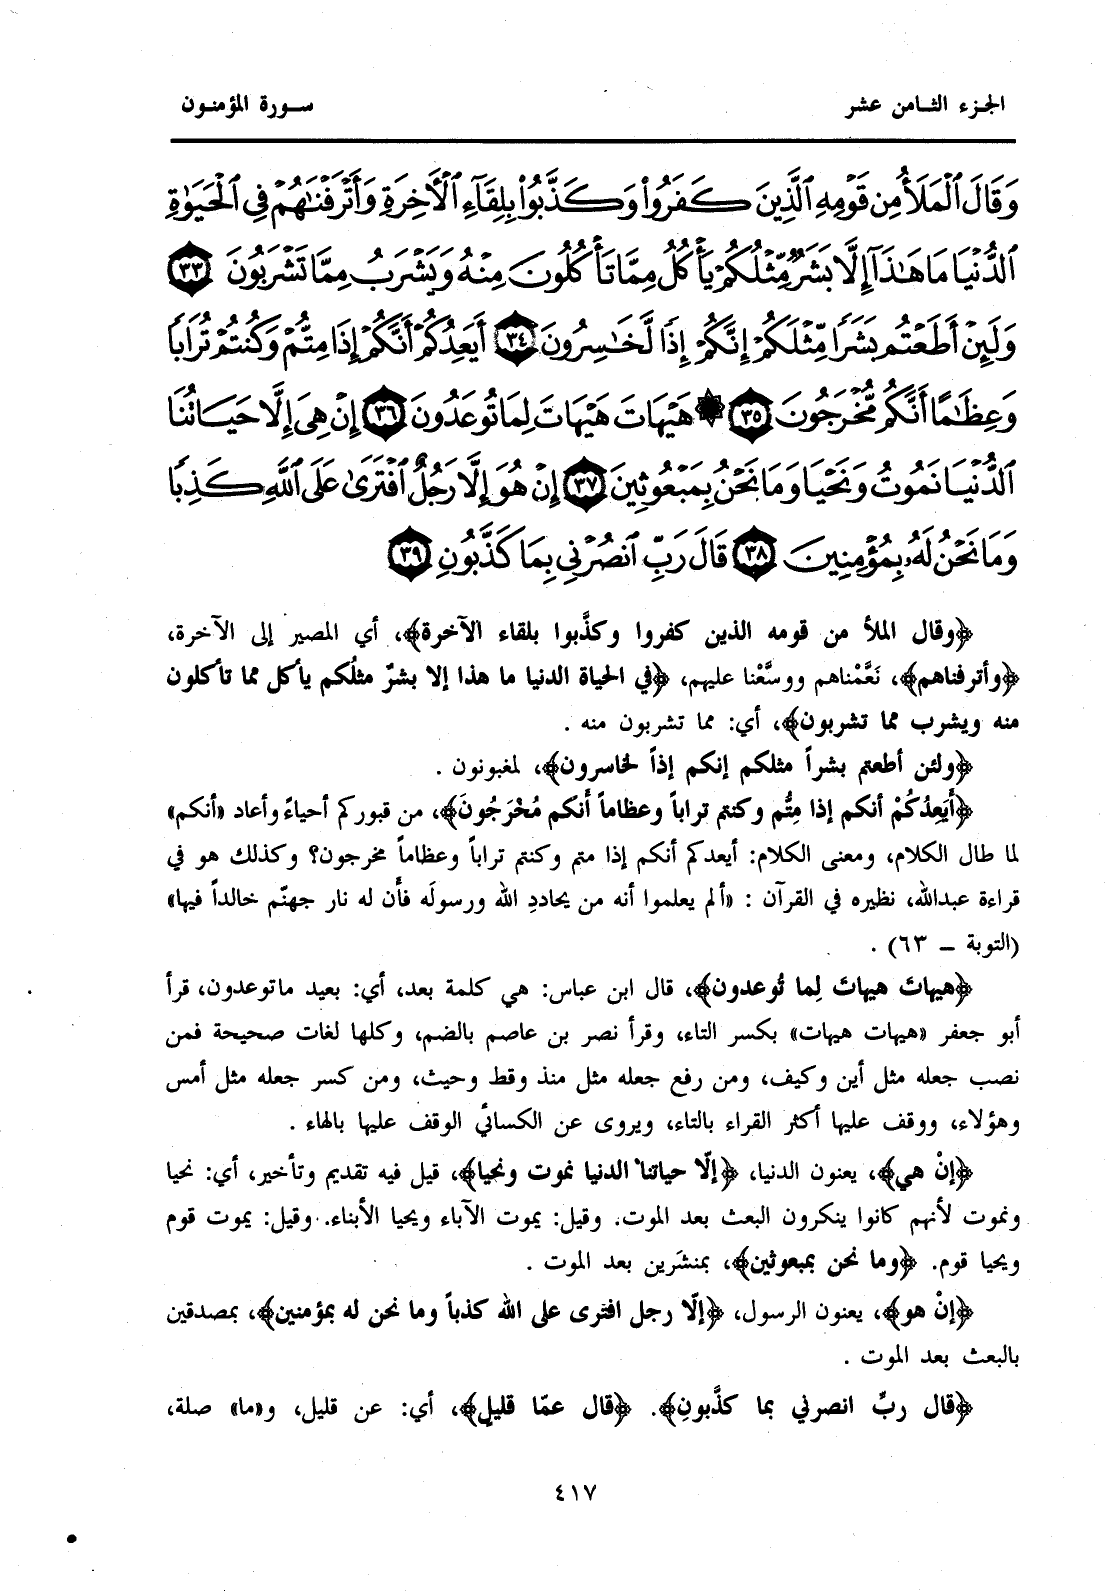 الجزء الثامن عشر
سورة المؤمنون
وَقَالَ ٱلْمَلَأُ مِن قَوْمِهِ ٱلَّذِينَ كَفَرُوا۟ وَكَذَّبُوا۟ بِلِقَآءِ ٱلْأَخِرَةِ وَأَتْرَفْنَٰهُمْ فِى ٱلْحَيَوٰةِ
ٱلدُّنْيَا مَا هَٰذَآ إِلَّا بَشَرٌ مِّثْلُكُمْ يَأْكُلُ مِمَّا تَأْكُلُونَ مِنْهُ وَيَشْرَبُ مِمَّا تَشْرَبُونَ ٣٣
وَلَئِنْ أَطَعْتُم بَشَرًا مِّثْلَكُمْ إِنَّكُمْ إِذًا لَّخَٰسِرُونَ ٣٤ أَيَعِدُكُمْ أَنَّكُمْ إِذَا مِتُّمْ وَكُنتُمْ تُرَابًا
وَعِظَٰمًا أَنَّكُم مُّخْرَجُونَ ٣٥ ۞ هَيْهَاتَ هَيْهَاتَ لِمَا تُوعَدُونَ ٣٦ إِنْ هِىَ إِلَّا حَيَاتُنَا
ٱلدُّنْيَا نَمُوتُ وَنَحْيَا وَمَا نَحْنُ بِمَبْعُوثِينَ ٣٧ إِنْ هُوَ إِلَّا رَجُلٌ ٱفْتَرَىٰ عَلَى ٱللَّهِ كَذِبًا
وَمَا نَحْنُ لَهُۥ بِمُؤْمِنِينَ ٣٨ قَالَ رَبِّ ٱنصُرْنِى بِمَا كَذَّبُونِ ٣٩
﴿وقال الملأ من قومه الذين كفروا وكذَّبوا بلقاء الآخرة﴾، أي المصير إلى الآخرة،
﴿وأترفناهم﴾، نَعَّمْناهم ووسَّعْنا عليهم، ﴿في الحياة الدنيا ما هذا إلا بشرٌ مثلُكم يأكل مما تأكلون
منه ويشرب مما تشربون﴾، أي: مما تشربون منه .
﴿ولئن أطعتم بشراً مثلكم إنكم إذاً لخاسرون﴾، لمغبونون .
﴿أَيَعِدُكُمْ أنكم إذا مِتُّم وكنتم تراباً وعظاماً أنكم مُخْرَجُونَ﴾، من قبوركم أحياءً وأعاد «أنكم»
لما طال الكلام، ومعنى الكلام: أيعدكم أنكم إذا متم وكنتم تراباً وعظاماً مخرجون؟ وكذلك هو في
قراءة عبدالله، نظيره في القرآن : «ألم يعلموا أنه من يحاددِ الله ورسولَه فأن له نار جهنّم خالداً فيها»
(التوبة – ٦٣) .
﴿هيهاتَ هيهاتَ لِما تُوعدون﴾، قال ابن عباس: هي كلمة بعد، أي: بعيد ماتوعدون، قرأ
أبو جعفر «هيهات هيهات» بكسر التاء، وقرأ نصر بن عاصم بالضم، وكلها لغات صحيحة فمن
نصب جعله مثل أين وكيف، ومن رفع جعله مثل منذ وقط وحيث، ومن كسر جعله مثل أمس
وهؤلاء، ووقف عليها أكثر القراء بالتاء، ويروى عن الكسائي الوقف عليها بالهاء .
﴿إنْ هي﴾، يعنون الدنيا، ﴿إلّا حياتنا الدنيا نموت ونحيا﴾، قيل فيه تقديم وتأخير، أي: نحيا
ونموت لأنهم كانوا ينكرون البعث بعد الموت. وقيل: يموت الآباء ويحيا الأبناء. وقيل: يموت قوم
ويحيا قوم. ﴿وما نحن بمبعوثين﴾، بمنشَرين بعد الموت .
﴿إنْ هو﴾، يعنون الرسول، ﴿إلّا رجل افترى على الله كذباً وما نحن له بمؤمنين﴾، بمصدقين
بالبعث بعد الموت .
﴿قال ربِّ انصرني بما كذَّبونِ﴾. ﴿قال عمّا قليلٍ﴾، أي: عن قليل، و«ما» صلة،
٤١٧